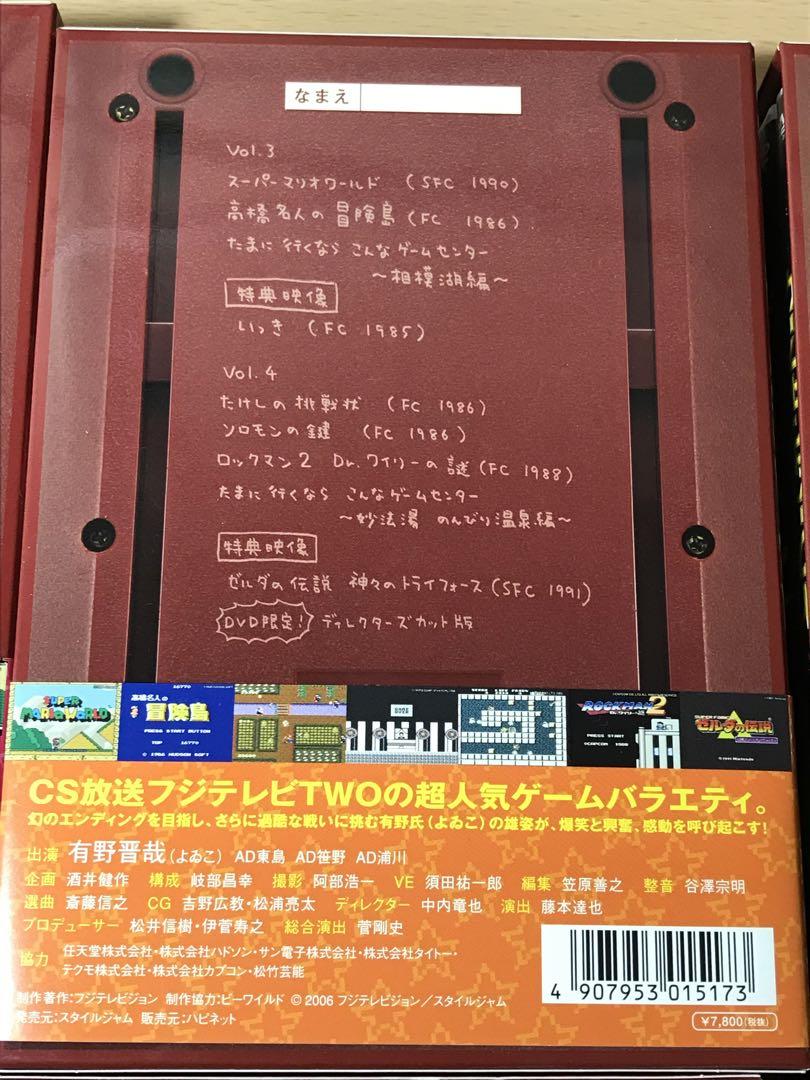 なまえ
Vol.3
スーパーマリオワールド (SFC 1990)
高橋名人の冒険島 (FC 1986)
たまに行くなら こんなゲームセンター
〜相模湖編〜
特典映像
いっき (FC 1985)
Vol.4
たけしの挑戦状 (FC 1986)
ソロモンの鍵 (FC 1986)
ロックマン2 Dr.ワイリーの謎 (FC 1988)
たまに行くなら こんなゲームセンター
〜妙法湯 のんびり温泉編〜
特典映像
ゼルダの伝説 神々のトライフォース (SFC 1991)
DVD限定! ディレクターズカット版
SUPER MARIOWORLD
16770
高橋名人の
冒険島
PRESS START BUTTON
TOP 16770
© 1986 HUDSON SOFT
ROCKMAN 2
Dr.ワイリーの謎
PRESS START
©CAPCOM 1988
ゼルダの伝説
CS放送フジテレビTWOの超人気ゲームバラエティ。
幻のエンディングを目指し、さらに過酷な戦いに挑む有野氏(よゐこ)の雄姿が、爆笑と興奮、感動を呼び起こす!
出演 有野晋哉(よゐこ) AD東島 AD笹野 AD浦川
企画 酒井健作 構成 岐部昌幸 撮影 阿部浩一 VE 須田祐一郎 編集 笠原善之 整音 谷澤宗明
選曲 斎藤信之 CG 吉野広教・松浦亮太 ディレクター 中内竜也 演出 藤本達也
プロデューサー 松井信樹・伊菅寿之 総合演出 菅剛史
協力 任天堂株式会社・株式会社ハドソン・サン電子株式会社・株式会社タイトー・
テクモ株式会社・株式会社カプコン・松竹芸能
制作著作:フジテレビジョン 制作協力:ビーワイルド © 2006 フジテレビジョン/スタイルジャム
発売元:スタイルジャム 販売元:ハピネット
4 907953 015173
¥7,800(税抜)